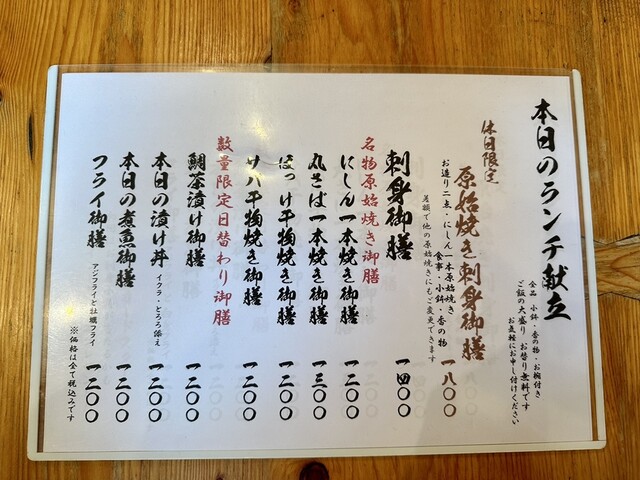 本日のランチ献立
全品 小鉢・香の物・お椀付き
ご飯の大盛り お替り無料です
お気軽にお申し付けください
休日限定
原始焼き刺身御膳 一八〇〇
お造り二点・にしん一本原始焼き
食事・小鉢・香の物
差額で他の原始焼きにもご変更できます
刺身御膳 一四〇〇
名物原始焼き御膳
にしん一本焼き御膳 一二〇〇
丸さば一本焼き御膳 一三〇〇
ほっけ干物焼き御膳 一二〇〇
サバ干物焼き御膳 一二〇〇
数量限定日替わり御膳
鯛茶漬け御膳 一二〇〇
本日の漬け丼 一二〇〇
イクラ・とろろ添え
本日の煮魚御膳 一二〇〇
フライ御膳 一二〇〇
アジフライと牡蠣フライ
※価格は全て税込みです